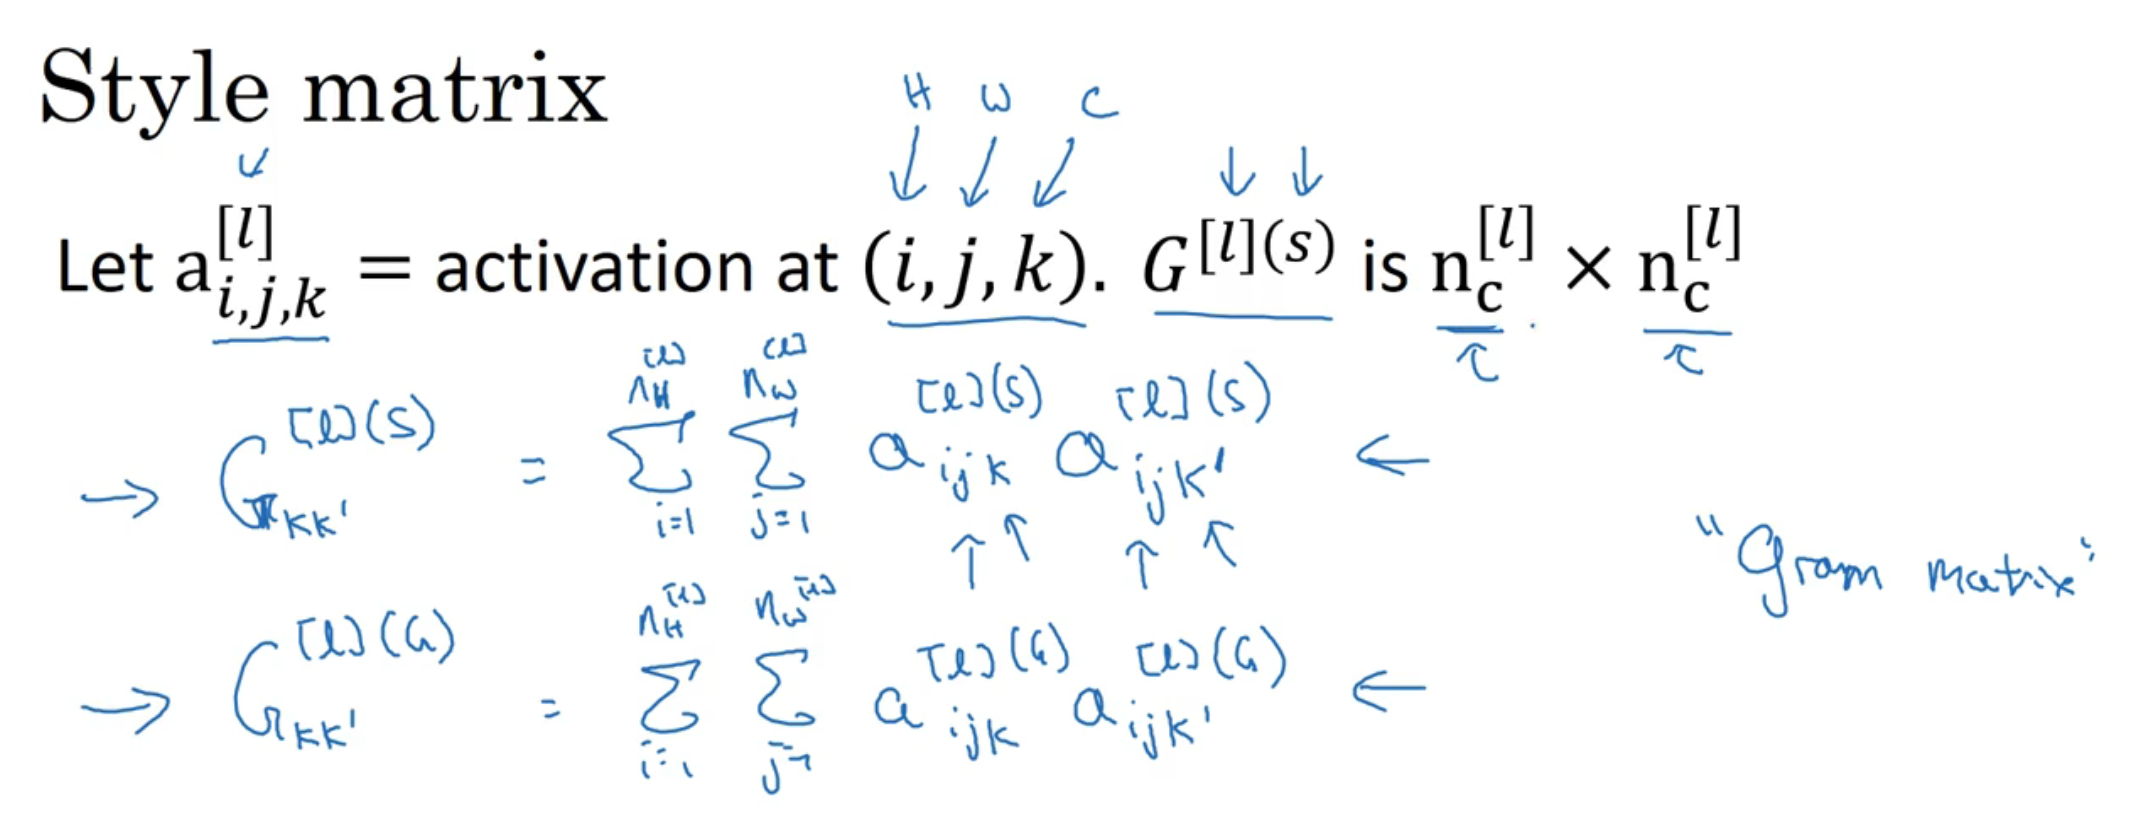 Style matrix
H W C
Let a^{[l]}_{i,j,k} = activation at (i, j, k). G^{[l](s)} is n_c^{[l]} × n_c^{[l]}
→ G^{[l](S)}_{kk'} = ∑_{i=1}^{n_H^{[l]}} ∑_{j=1}^{n_W^{[l]}} a^{[l](S)}_{ijk} a^{[l](S)}_{ijk'} ←
"Gram matrix"
→ G^{[l](G)}_{kk'} = ∑_{i=1}^{n_H^{[l]}} ∑_{j=1}^{n_W^{[l]}} a^{[l](G)}_{ijk} a^{[l](G)}_{ijk'} ←